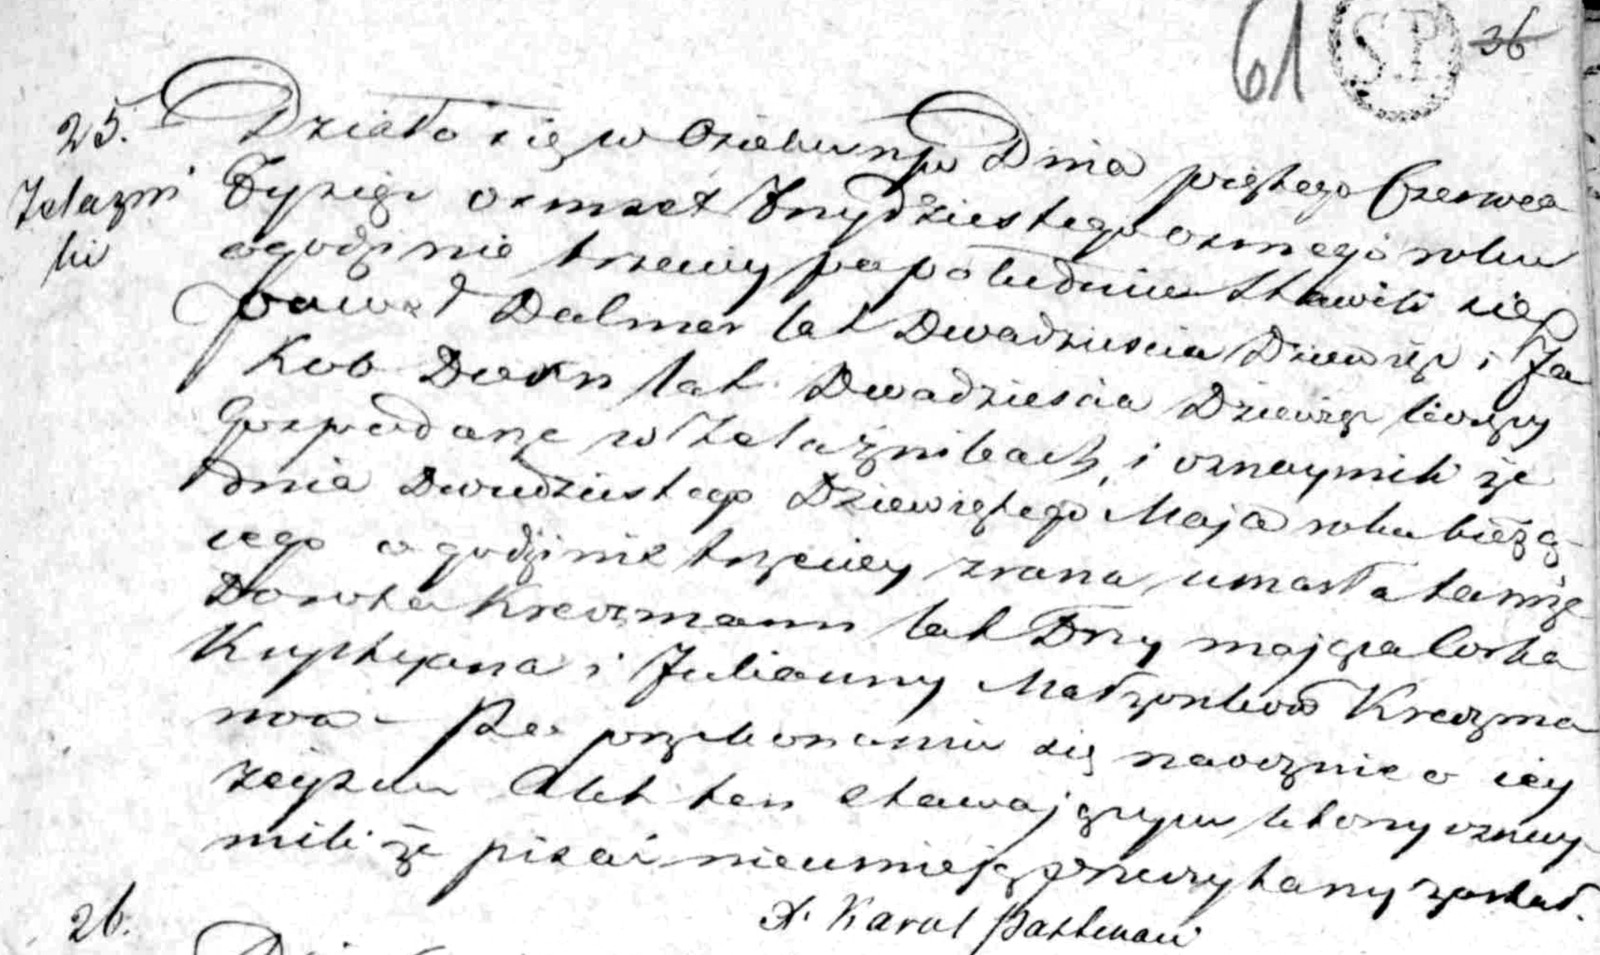 61 S.P. 36
25. Działo się w Dnia piątego Czerwca
Żelazni Tysiąc osmset Trzydziestego osmego roku
ki o godzinie trzeciey po południu Stawili się
Paweł Dalmer lat Dwadzieścia Dziewięć i Ja
kob Dorn lat Dwadzieścia Dziewięć liczący
Gospodarze w Żelaznikach, i oznaymili że
dnia Dwudziestego Dziewiątego Maja roku bieżą
cego o godzinie trzeciey zrana umarła tamże
Dorota Kreczmann lat Trzy maiąca Corka
Krysztyana i Julianny Małżonków Kreczma
now – Po przekonaniu się naocznie o iey
zeyściu Akt ten stawaiącym ktorzy oznay
mili że pisać nieumieią przeczytany został.
X. Karol
26.